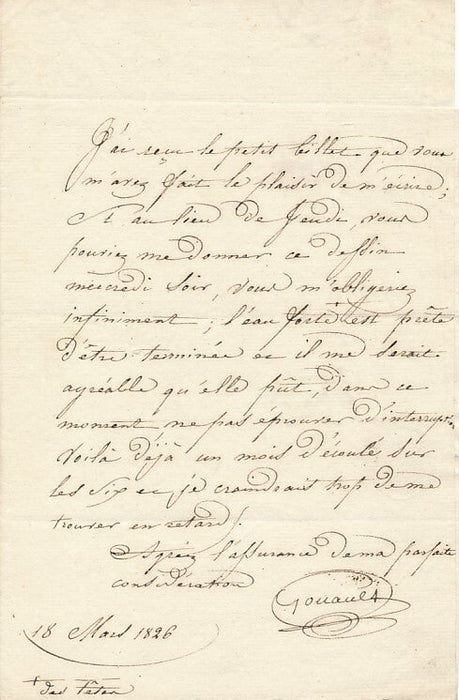 J'ai reçu le petit billet que vous
m'avez fait le plaisir de m'écrire;
Si au lieu de Jeudi, vous
pouriez me donner ce dessin
mercredi soir, vous m'obligeriez
infiniment; l'eau forte est prête
d'être terminée et il me serait
agréable qu'elle pût, dans ce
moment ne pas éprouver d'interrupt.
Voilà déjà un mois d'écoulé sur
les six et je craindrais trop de me
trouver en retard!
Agréez l'assurance de ma parfaite
considération
Gouault
18 Mars 1826
+ des têtes